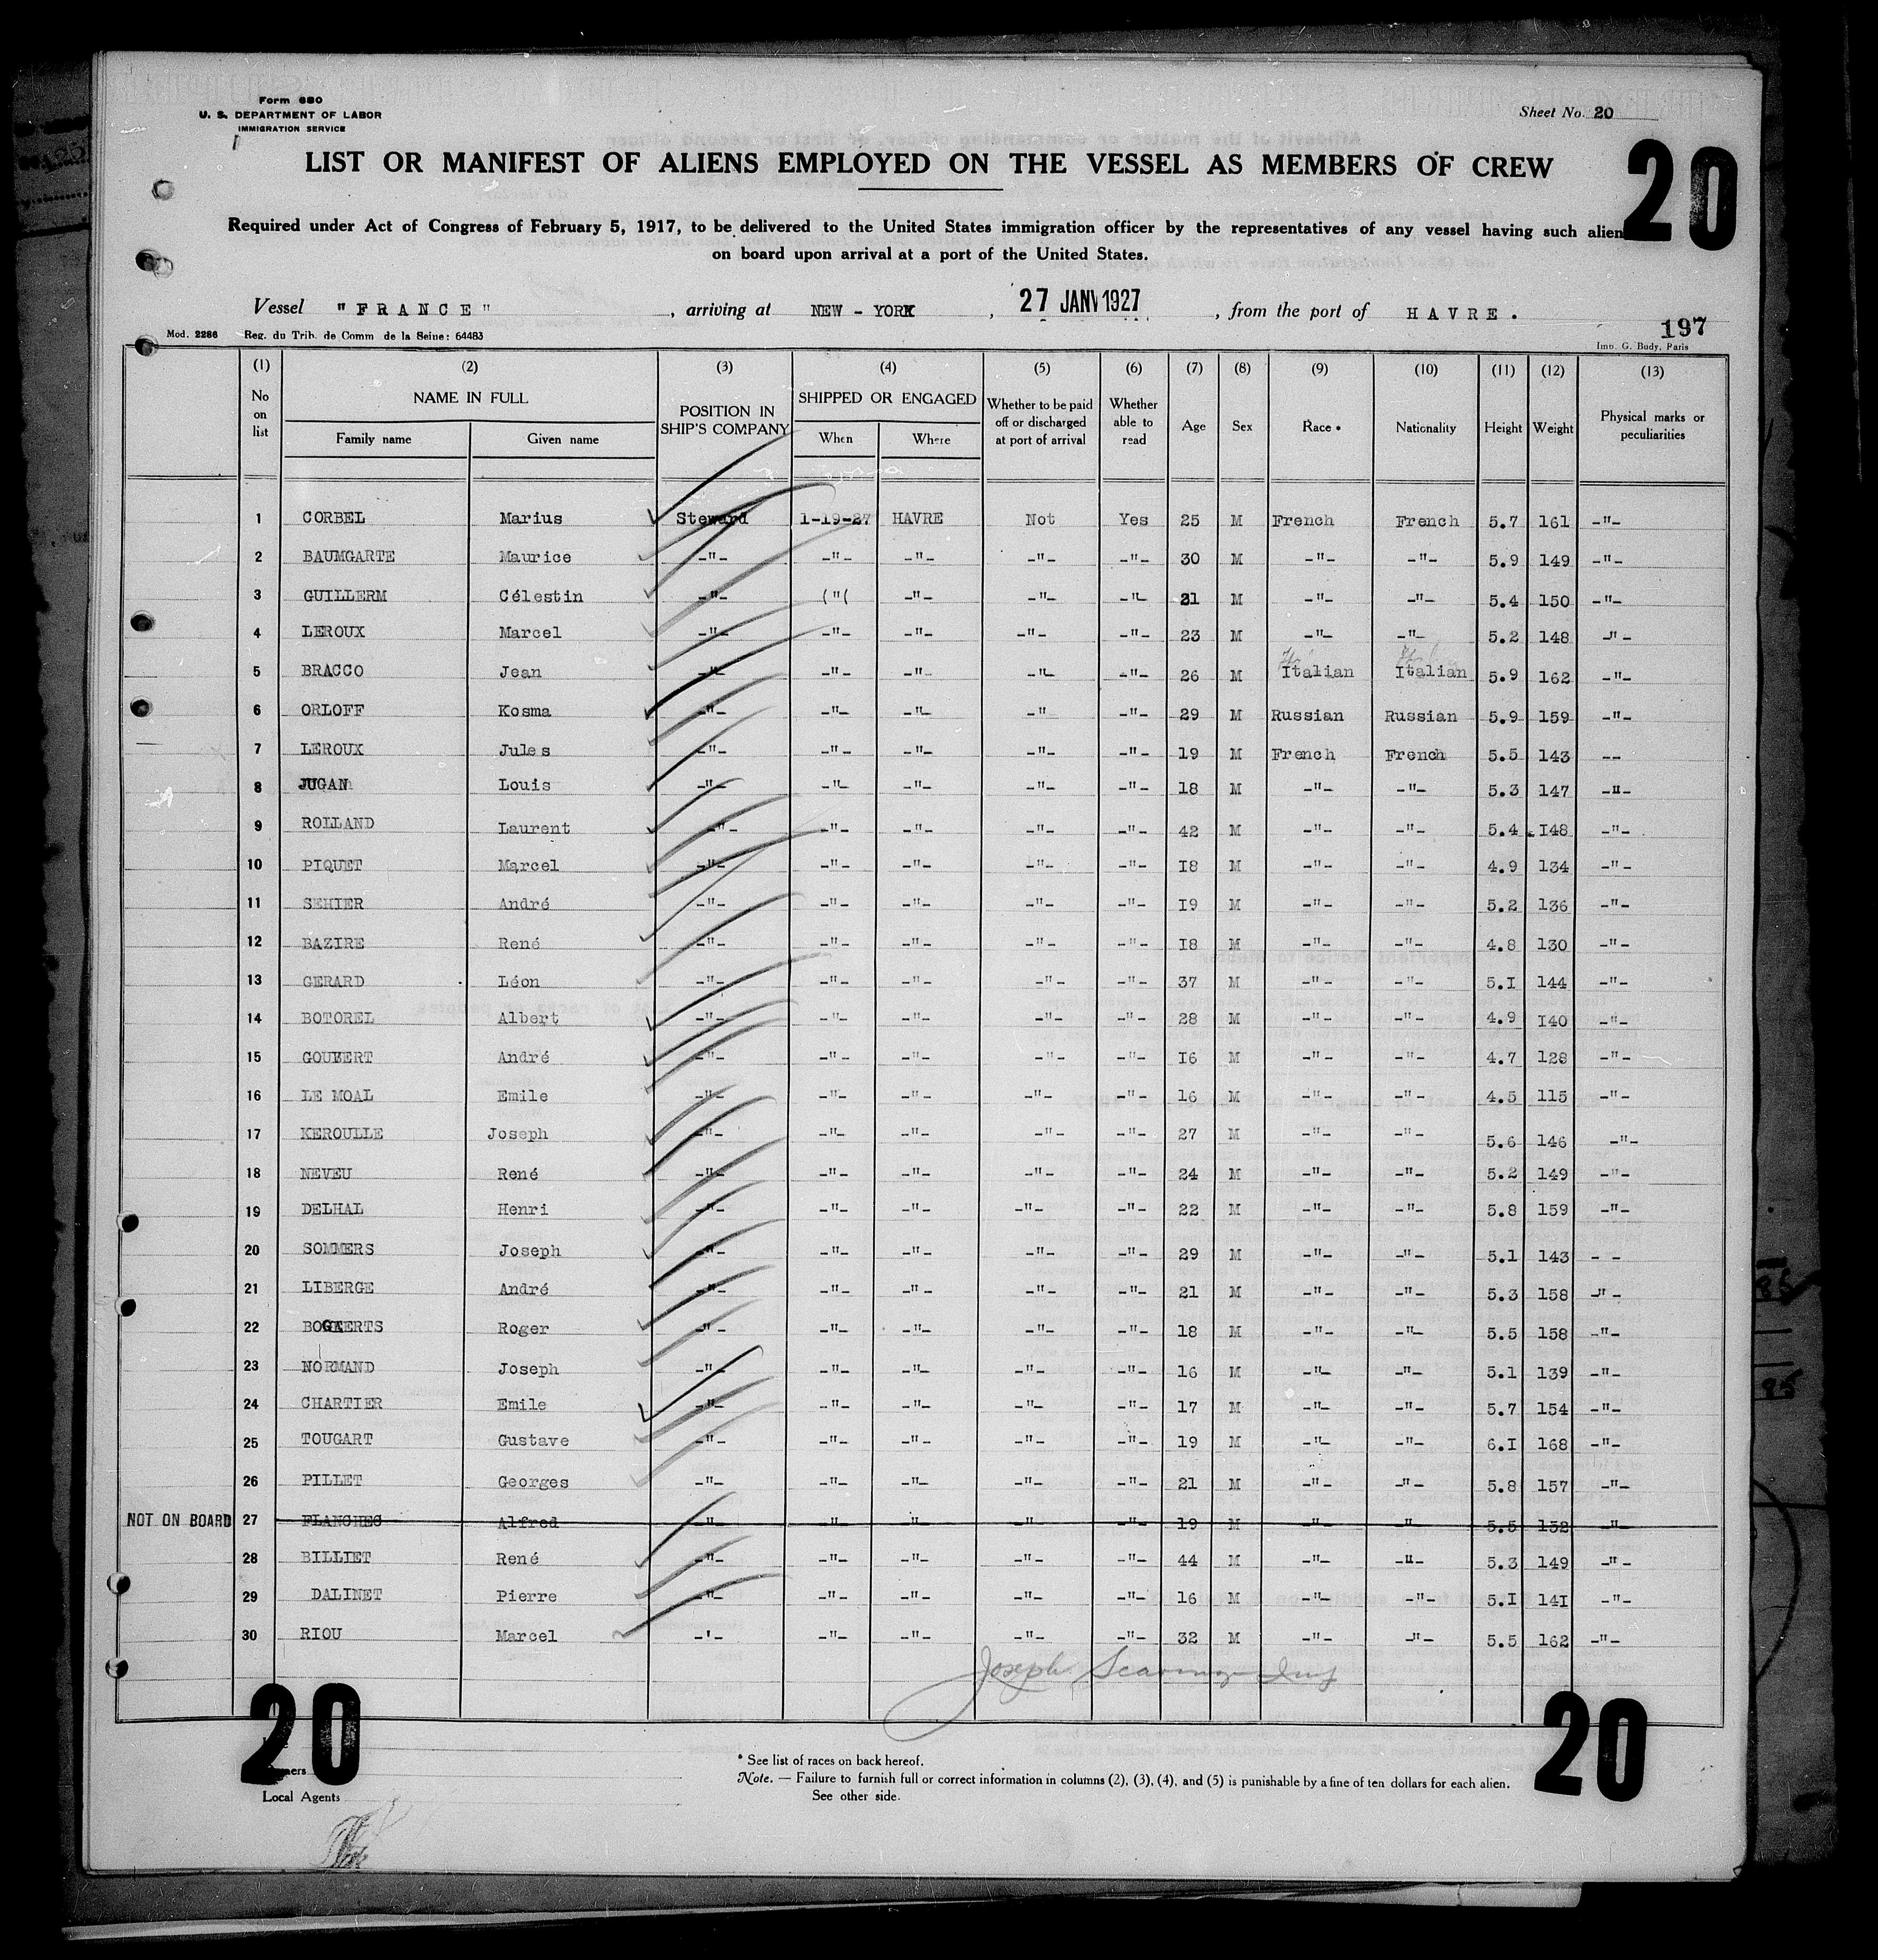 Form 680
U. S. DEPARTMENT OF LABOR
IMMIGRATION SERVICE
Sheet No. 20
20
LIST OR MANIFEST OF ALIENS EMPLOYED ON THE VESSEL AS MEMBERS OF CREW
Required under Act of Congress of February 5, 1917, to be delivered to the United States immigration officer by the representatives of any vessel having such alien
on board upon arrival at a port of the United States.
Vessel "FRANCE", arriving at NEW - YORK, 27 JANV 1927, from the port of HAVRE.
197
Mod. 2286 Reg. du Trib. de Comm de la Seine: 64483 Imp. G. Body, Paris
(1) (2) (3) (4) (5) (6) (7) (8) (9) (10) (11) (12) (13)
No on list NAME IN FULL Family name Given name POSITION IN SHIP'S COMPANY SHIPPED OR ENGAGED When Where Whether to be paid off or discharged at port of arrival Whether able to read Age Sex Race * Nationality Height Weight Physical marks or peculiarities
1 CORBEL Marius Steward 1-19-27 HAVRE Not Yes 25 M French French 5.7 161 -"-
2 BAUMGARTE Maurice -"- -"- -"- -"- -"- 30 M -"- -"- 5.9 149 -"-
3 GUILLERM Célestin -"- ("( -"- -"- -"- 21 M -"- -"- 5.4 150 -"-
4 LEROUX Marcel -"- -"- -"- -"- -"- 23 M -"- -"- 5.2 148 -"-
5 BRACCO Jean -"- -"- -"- -"- -"- 26 M Italian Italian 5.9 162 -"-
6 ORLOFF Kosma -"- -"- -"- -" -"- 29 M Russian Russian 5.9 159 -"-
7 LEROUX Jules -"- -"- -"- -"- -"- 19 M French French 5.5 143 --
8 JUGAN Louis -"- -"- -"- -"- -"- 18 M -"- -"- 5.3 147 -"-
9 ROLLAND Laurent -"- -"- -"- -"- -"- 42 M -"- -"- 5.4 148 -"-
10 PIQUET Marcel -"- -"- -"- -"- -"- 18 M -"- -"- 4.9 134 -"-
11 SEHIER André -"- -"- -"- -"- -"- 19 M -"- -"- 5.2 136 -"-
12 BAZIRE René -"- -"- -"- -"- -"- 18 M -"- -"- 4.8 130 -"-
13 GERARD Léon -"- -"- -"- -"- -"- 37 M -"- -"- 5.1 144 -"-
14 BOTOREL Albert -"- -"- -"- -"- -"- 28 M -"- -"- 4.9 140 -"-
15 GOUBERT André -"- -"- -"- -"- -"- 16 M -"- -"- 4.7 128 -"-
16 LE MOAL Emile -"- -"- -"- -"- -"- 16 M -"- -"- 4.5 115 -"-
17 KEROULLE Joseph -"- -"- -"- -"- -"- 27 M -"- -"- 5.6 146 -"-
18 NEVEU René -"- -"- -"- -"- -"- 24 M -"- -"- 5.2 149 -"-
19 DELHAL Henri -"- -"- -"- -"- -"- 22 M -"- -"- 5.8 159 -"-
20 SOMMERS Joseph -"- -"- -"- -"- -"- 29 M -"- -"- 5.1 143 - -
21 LIBERGE André -"- -"- -"- -"- -"- 21 M -"- -"- 5.3 158 -"-
22 BOGAERTS Roger -"- -"- -"- -"- -"- 18 M -"- -"- 5.5 158 -"-
23 NORMAND Joseph -"- -"- -"- -"- -"- 16 M -"- -"- 5.1 139 -"-
24 CHARTIER Emile -"- -"- -"- -"- -"- 17 M -"- -"- 5.7 154 -"-
25 TOUGART Gustave -"- -"- -"- -"- -"- 19 M -"- -"- 6.1 168 -"-
26 PILLET Georges -"- -"- -"- -"- -"- 21 M -"- -"- 5.8 157 -"-
NOT ON BOARD 27 FLANCHEC Alfred -"- -"- -"- -"- -"- 19 M -"- -"- 5.5 152 -"-
28 BILLIET René -"- -"- -"- -"- -"- 44 M -"- -"- 5.3 149 -"-
29 DALINET Pierre -"- -"- -"- -"- -"- 16 M -"- -"- 5.1 141 -"-
30 RIOU Marcel -'- -"- -"- -"- -"- 32 M -"- -"- 5.5 162 -"-
Joseph
20
20
Local Agents
* See list of races on back hereof.
Note. — Failure to furnish full or correct information in columns (2), (3), (4), and (5) is punishable by a fine of ten dollars for each alien.
See other side.